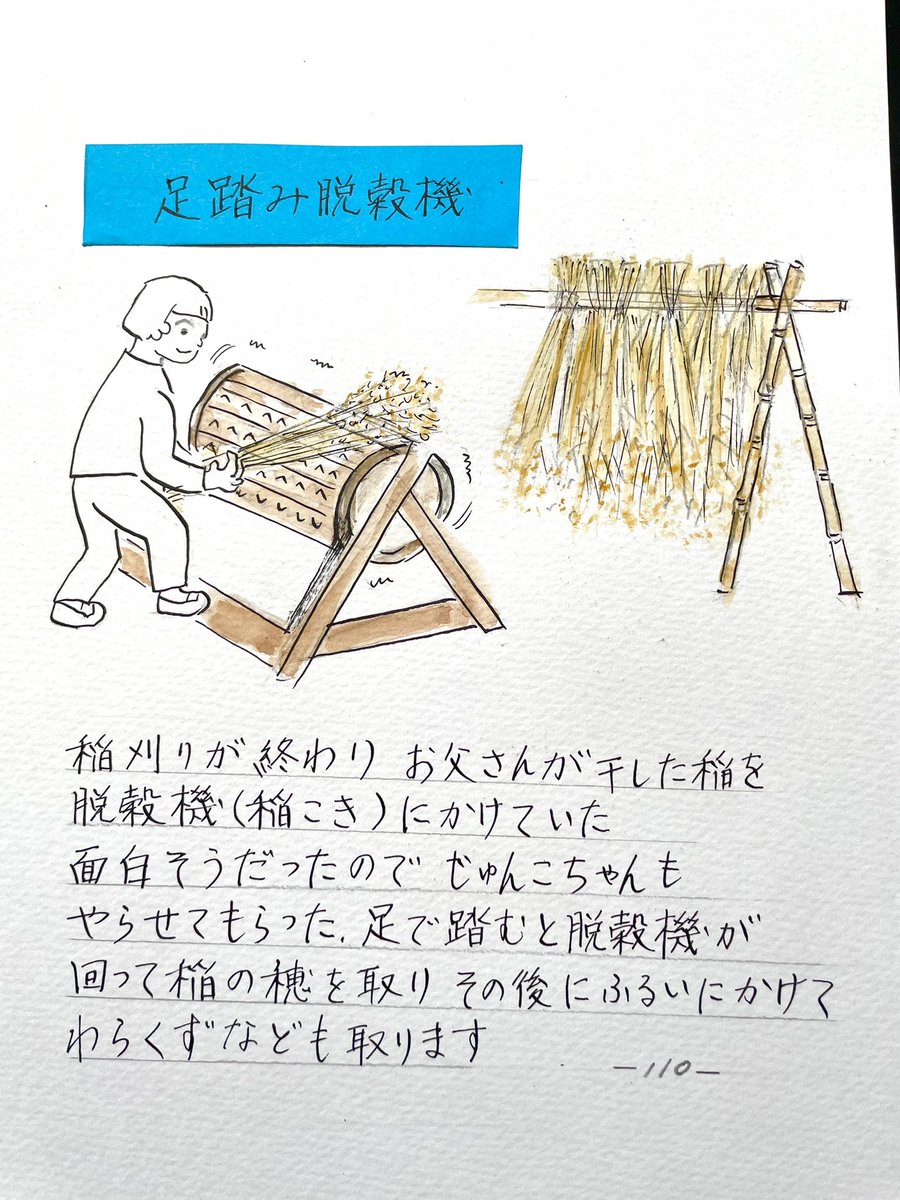 足踏み脱穀機
稲刈りが終わり お父さんが干した稲を
脱穀機(稲こき)にかけていた
面白そうだったので じゅんこちゃんも
やらせてもらった. 足で踏むと脱穀機が
回って稲の穂を取り その後にふるいにかけて
わらくずなども取ります
-110-